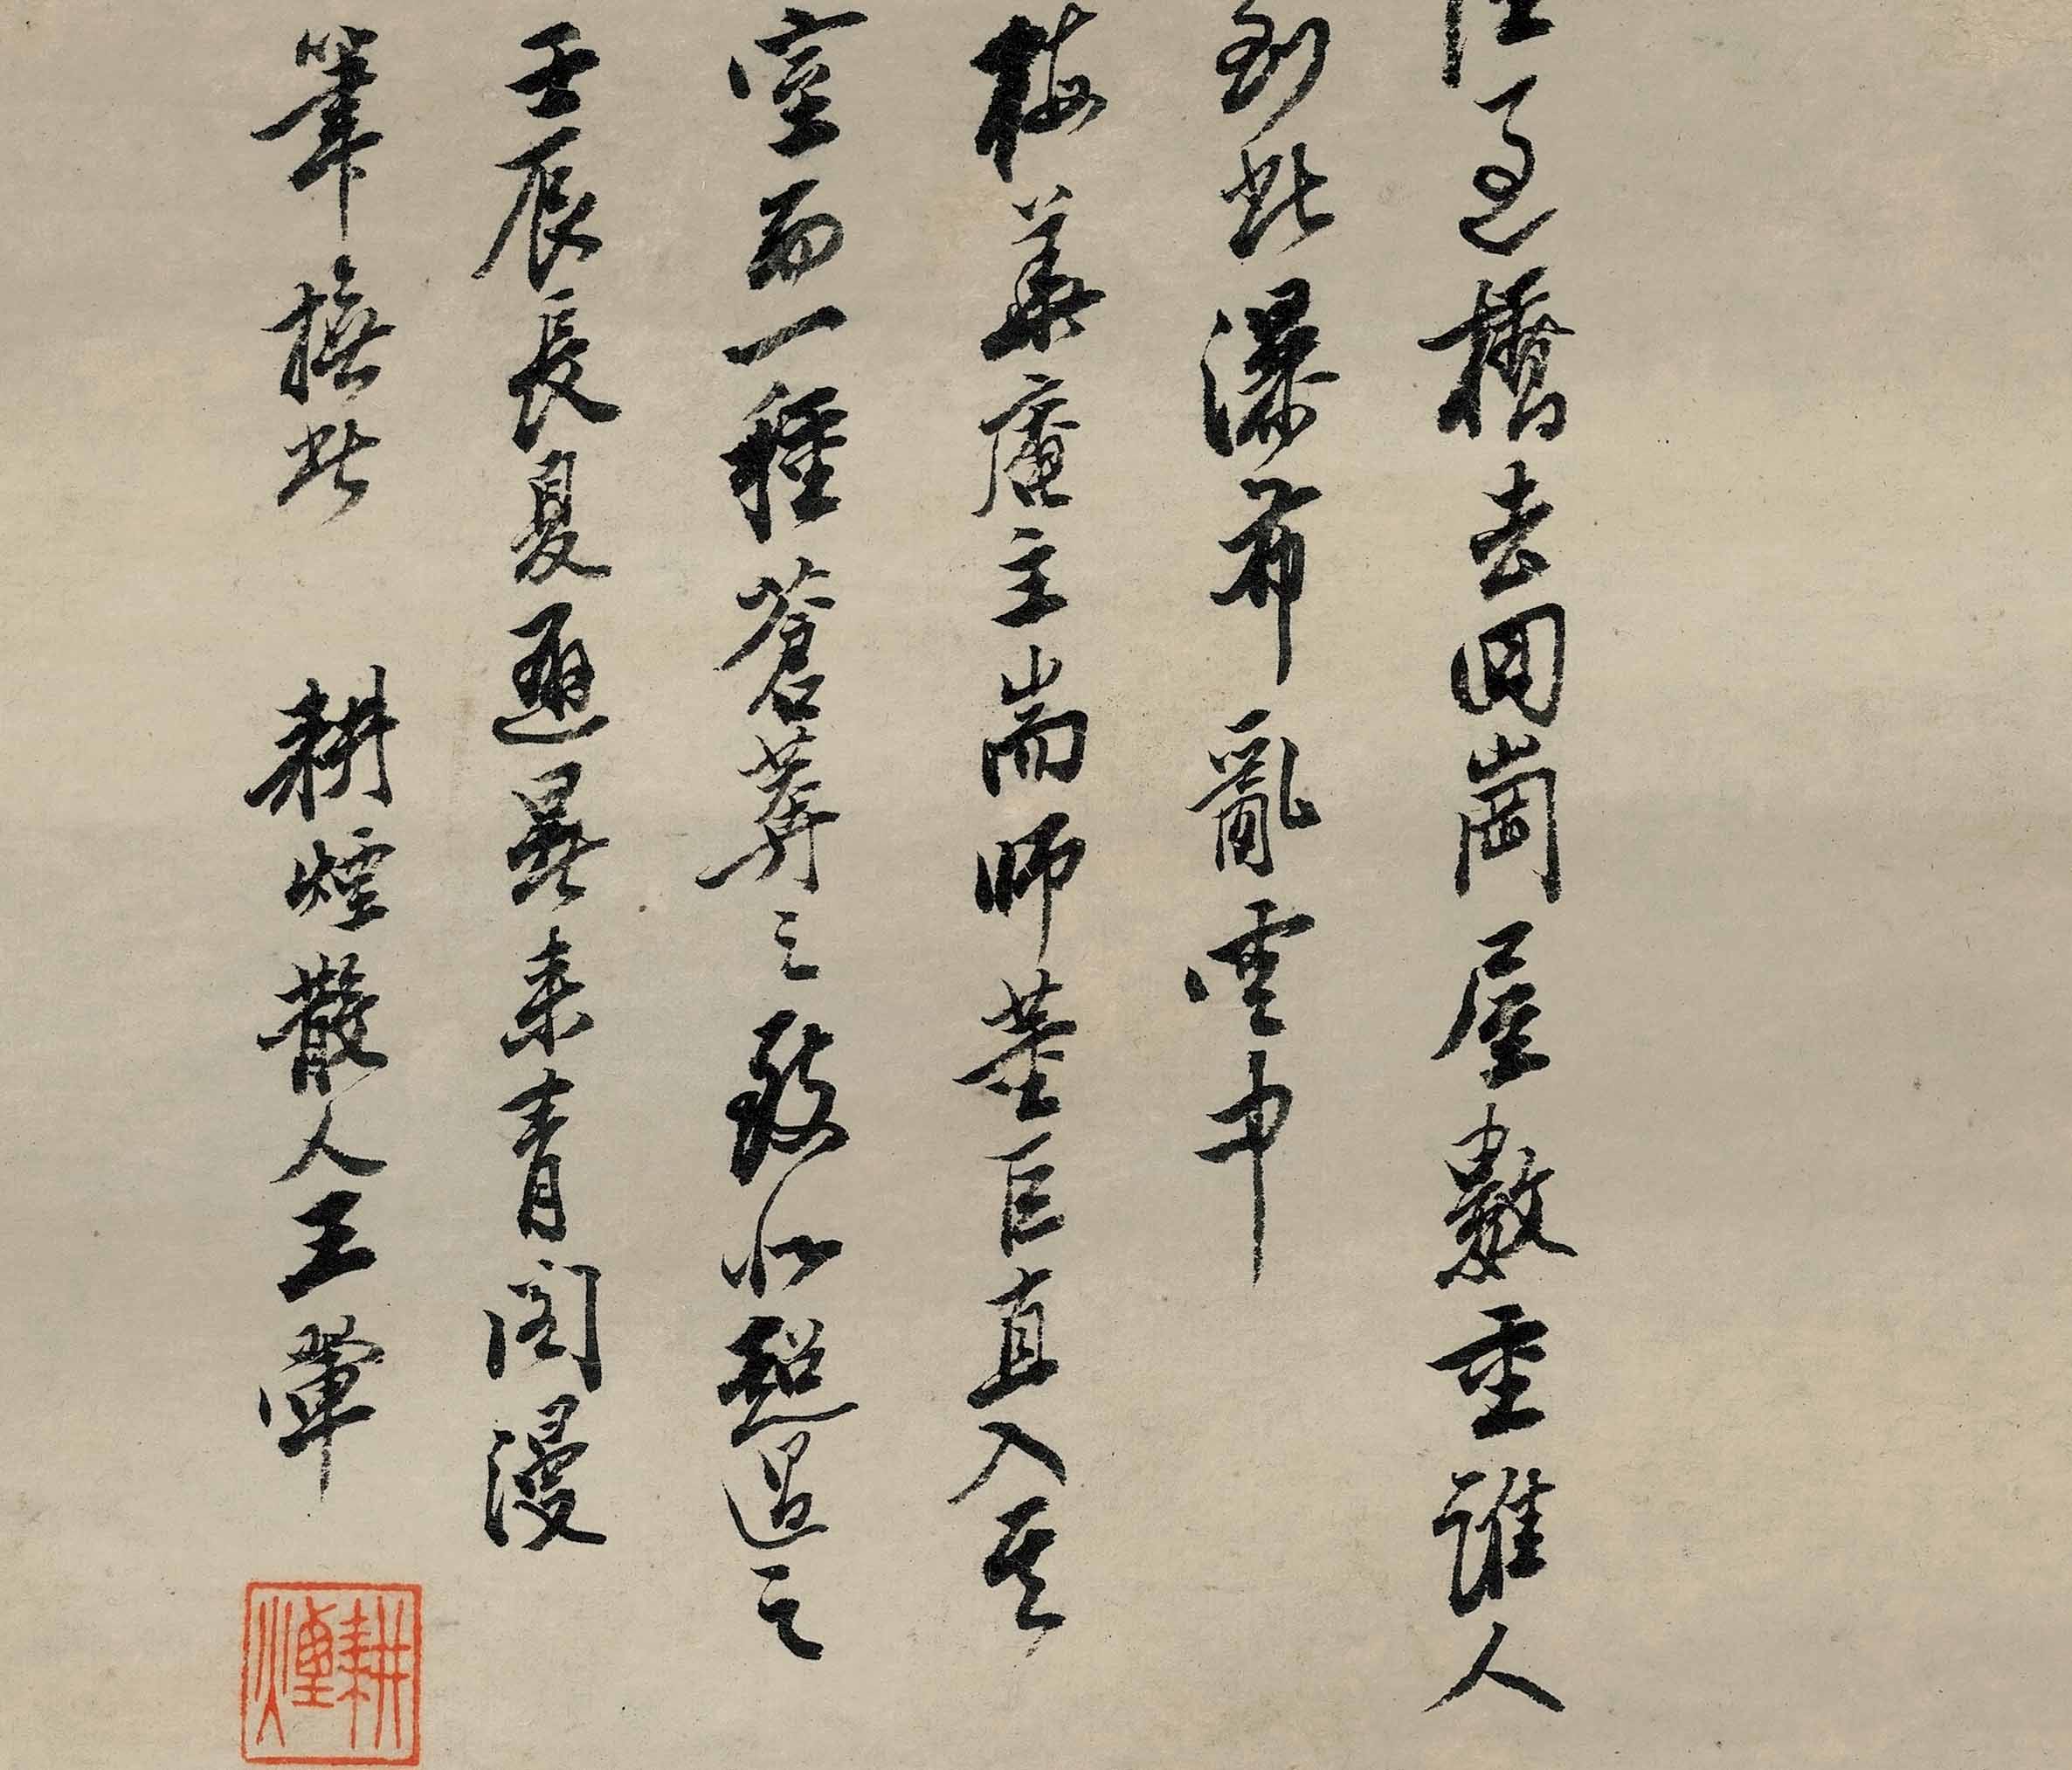 過橋去回崗屋數重誰人
到此瀑布亂雲中
梅華庵主耑師董巨直入其
室而一種蒼莽之致似超過之
壬辰長夏避暑來青閣漫
筆撫此 耕煙散人王翬
耕煙